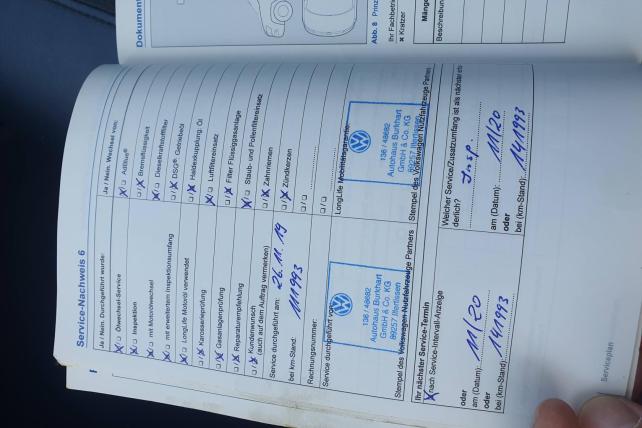 Service-Nachweis 6
Ja / Nein. Durchgeführt wurde:
Ölwechsel-Service
Inspektion
mit Motorölwechsel
mit erweitertem Inspektionsumfang
LongLife Motoröl verwendet
Karosserieprüfung
Gasanlagenprüfung
Reparaturempfehlung
Kundenwunsch
(auch auf dem Auftrag vermerken)
Service durchgeführt am: 26.11.19
bei km-Stand: 111993
Rechnungsnummer:
Service durchgeführt von:
136 / 48682
Autohaus Burkhart
GmbH & Co. KG
89257 Illertissen
Stempel des Volkswagen Nutzfahrzeuge Partners
Ja / Nein. Wechsel von:
AdBlue®
Bremsflüssigkeit
Dieselkraftstofffilter
DSG®. Getriebeöl
Haldexkupplung: Öl
Luftfiltereinsatz
Filter Flüssiggasanlage
Staub- und Pollenfiltereinsatz
Zahnriemen
Zündkerzen
LongLife Mobilitätsgarantie
136 / 48682
Autohaus Burkhart
GmbH & Co. KG
89257 Illertissen
Stempel des Volkswagen Nutzfahrzeuge Partners
Ihr nächster Service-Termin
nach Service-Intervall-Anzeige
oder
am (Datum): 11/20
oder
bei (km-Stand): 141993
Welcher Service/Zusatzumfang ist als nächster
derlich? Insp.
am (Datum): 11/20
oder
bei (km-Stand): 141993
Serviceplan
Dokument
Abb. 8
Ihr Fachbetrie
× Kratzer
Mänge
Beschreibung